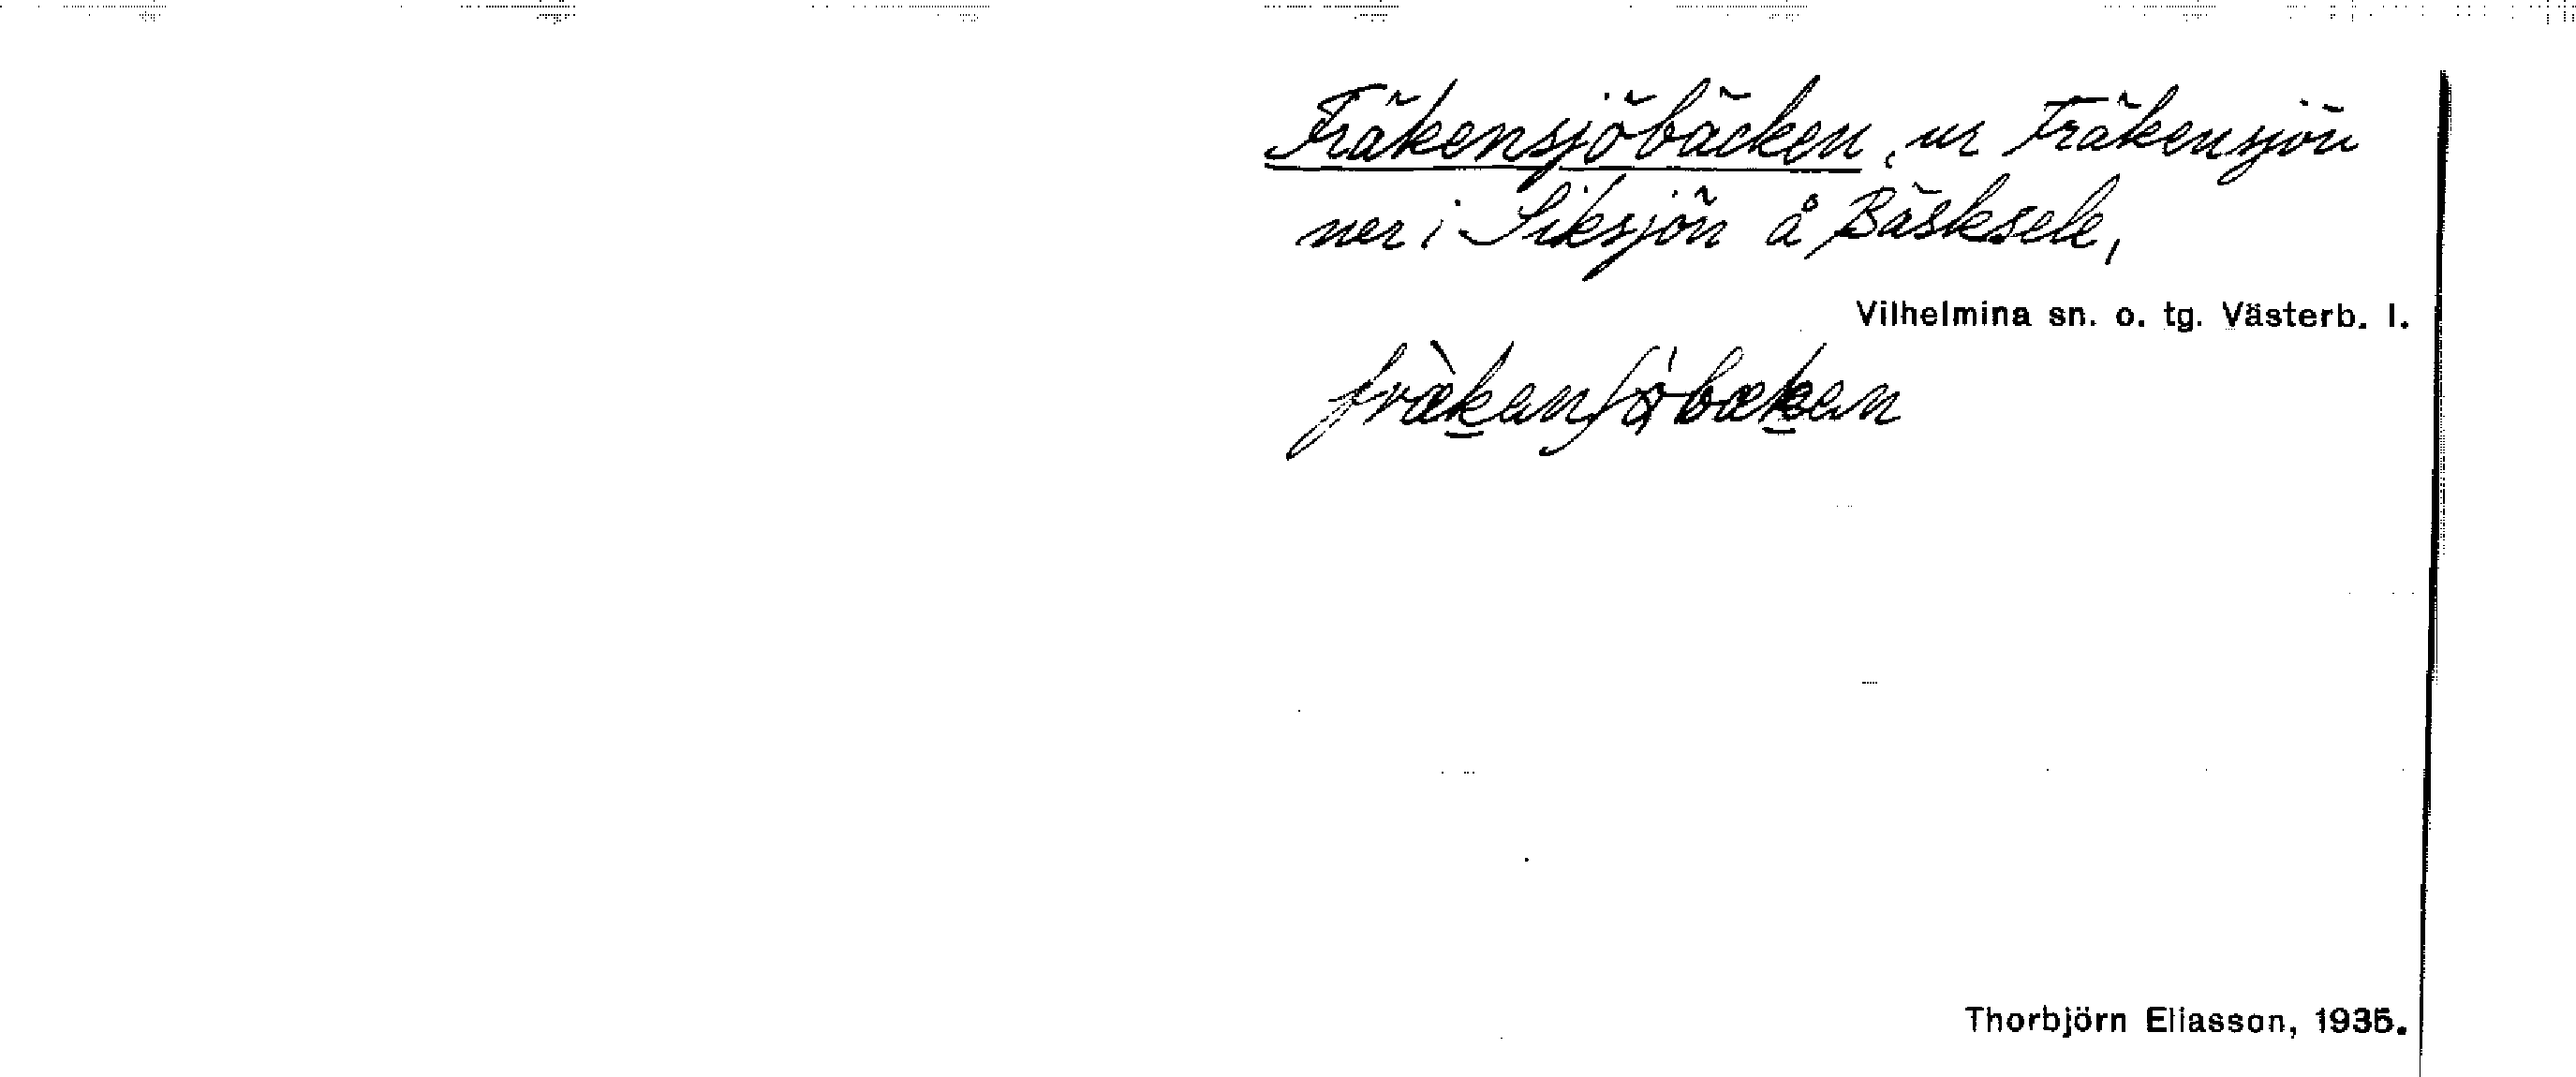 Fräkensjöbäcken, ur Fräkensjön
ner i Siksjön å Bäsksele,
Vilhelmina sn. o. tg. Västerb. l.
fræ̀kenʃöbæken
Thorbjörn Eliasson, 1935.